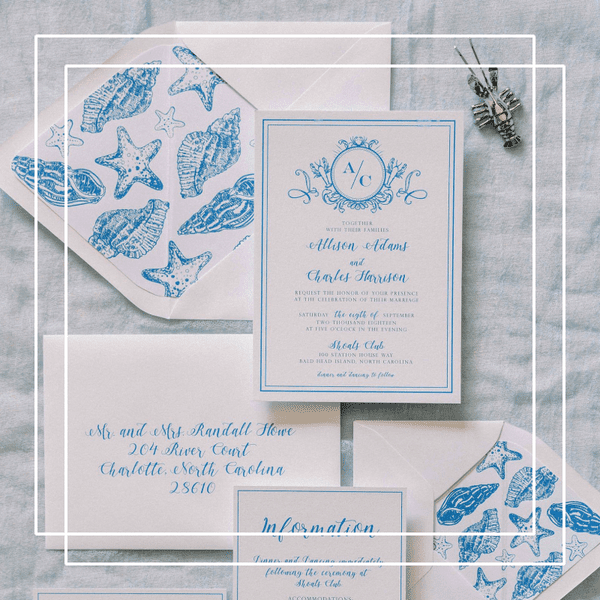 A/C
TOGETHER
WITH THEIR FAMILIES
Allison Adams
and
Charles Harrison
REQUEST THE HONOR OF YOUR PRESENCE
AT THE CELEBRATION OF THEIR MARRIAGE
SATURDAY the eigth of SEPTEMBER
TWO THOUSAND EIGHTEEN
AT FIVE O'CLOCK IN THE EVENING
Shoals Club
100 STATION HOUSE WAY
BALD HEAD ISLAND, NORTH CAROLINA
dinner and dancing to follow
Mr. and Mrs. Randall Howe
204 River Court
Charlotte, North Carolina
28610
Information
Dinner and Dancing immediately
following the ceremony at
Shoals Club
ACCOMMODATIONS: